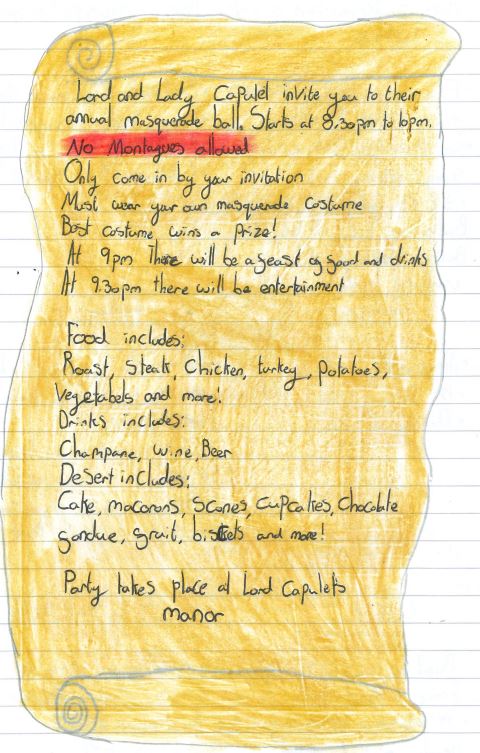 Lord and Lady Capulet invite you to their
annual masquerade ball. Starts at 8.30pm to 10pm.
No Montagues allowed
Only come in by your invitation
Must wear your own masquerade costume
Best costume wins a prize!
At 9pm There will be a feast of food and drinks
At 9.30pm there will be entertainment
Food includes:
Roast, Steak, Chicken, turkey, potatoes,
Vegetabels and more!
Drinks includes:
Champane, wine, Beer
Desert includes:
Cake, macarons, Scones, cupcakes, Chocolate
fondue, fruit, biskets and more!
Party takes place at Lord Capulet's
manor